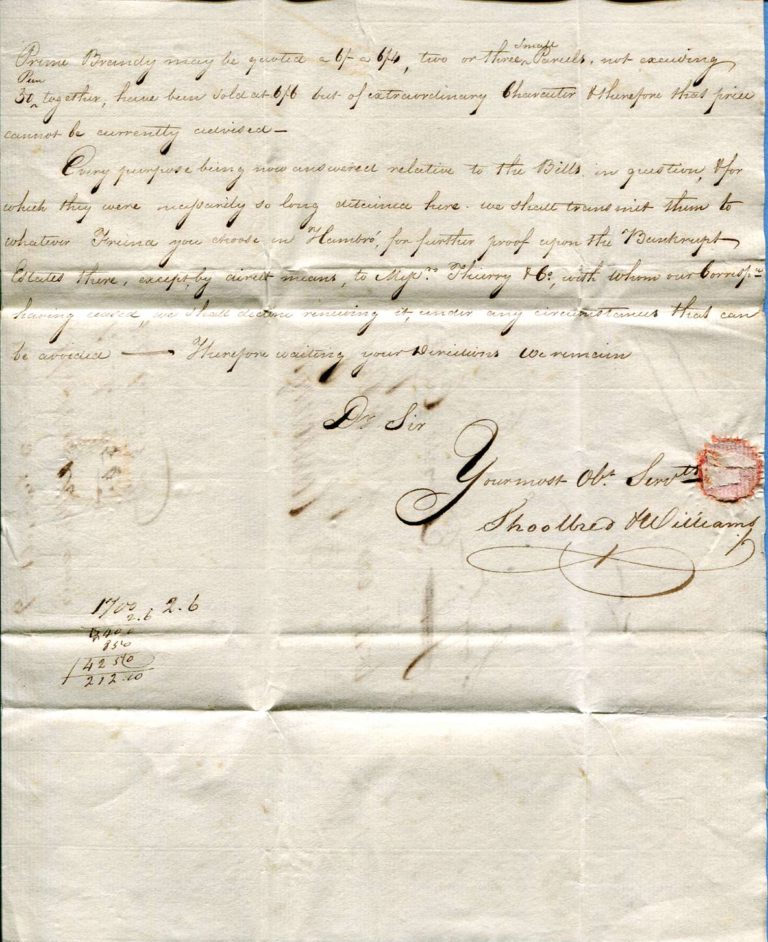 Prime Brandy may be quoted a 6/ a 6/4, two or three small Parcels, not exceeding
30 Pun together, have been sold at 6/6 but of extraordinary Character & therefore that price
cannot be currently advised —
Every purpose being now answered relative to the Bills in question, & for
which they were necessarily so long detained here - we shall transmit them to
whatever Freind you choose in Hambro', for further proof upon the Bankrupt
Estates there, except, by direct means, to Messrs. Thierry & Co, with whom our Corresp.ce
having ceased, we shall decline renewing it, under any circumstances that can
be avoided — Therefore waiting your Directions we remain
Dr Sir
Your most Obt. Servts
Shoolbred & Williams
1700 2.6
2.6
3400
850
4250
212.10